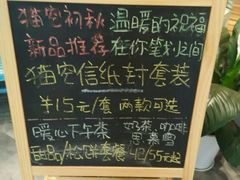 猫客初秋 温暖的祝福
新品推荐 在你笔划之间
猫客信纸封套装
¥15元/套 两款可装
暖心下午茶 奶茶、咖啡
甜品/松饼套餐 42/55元起